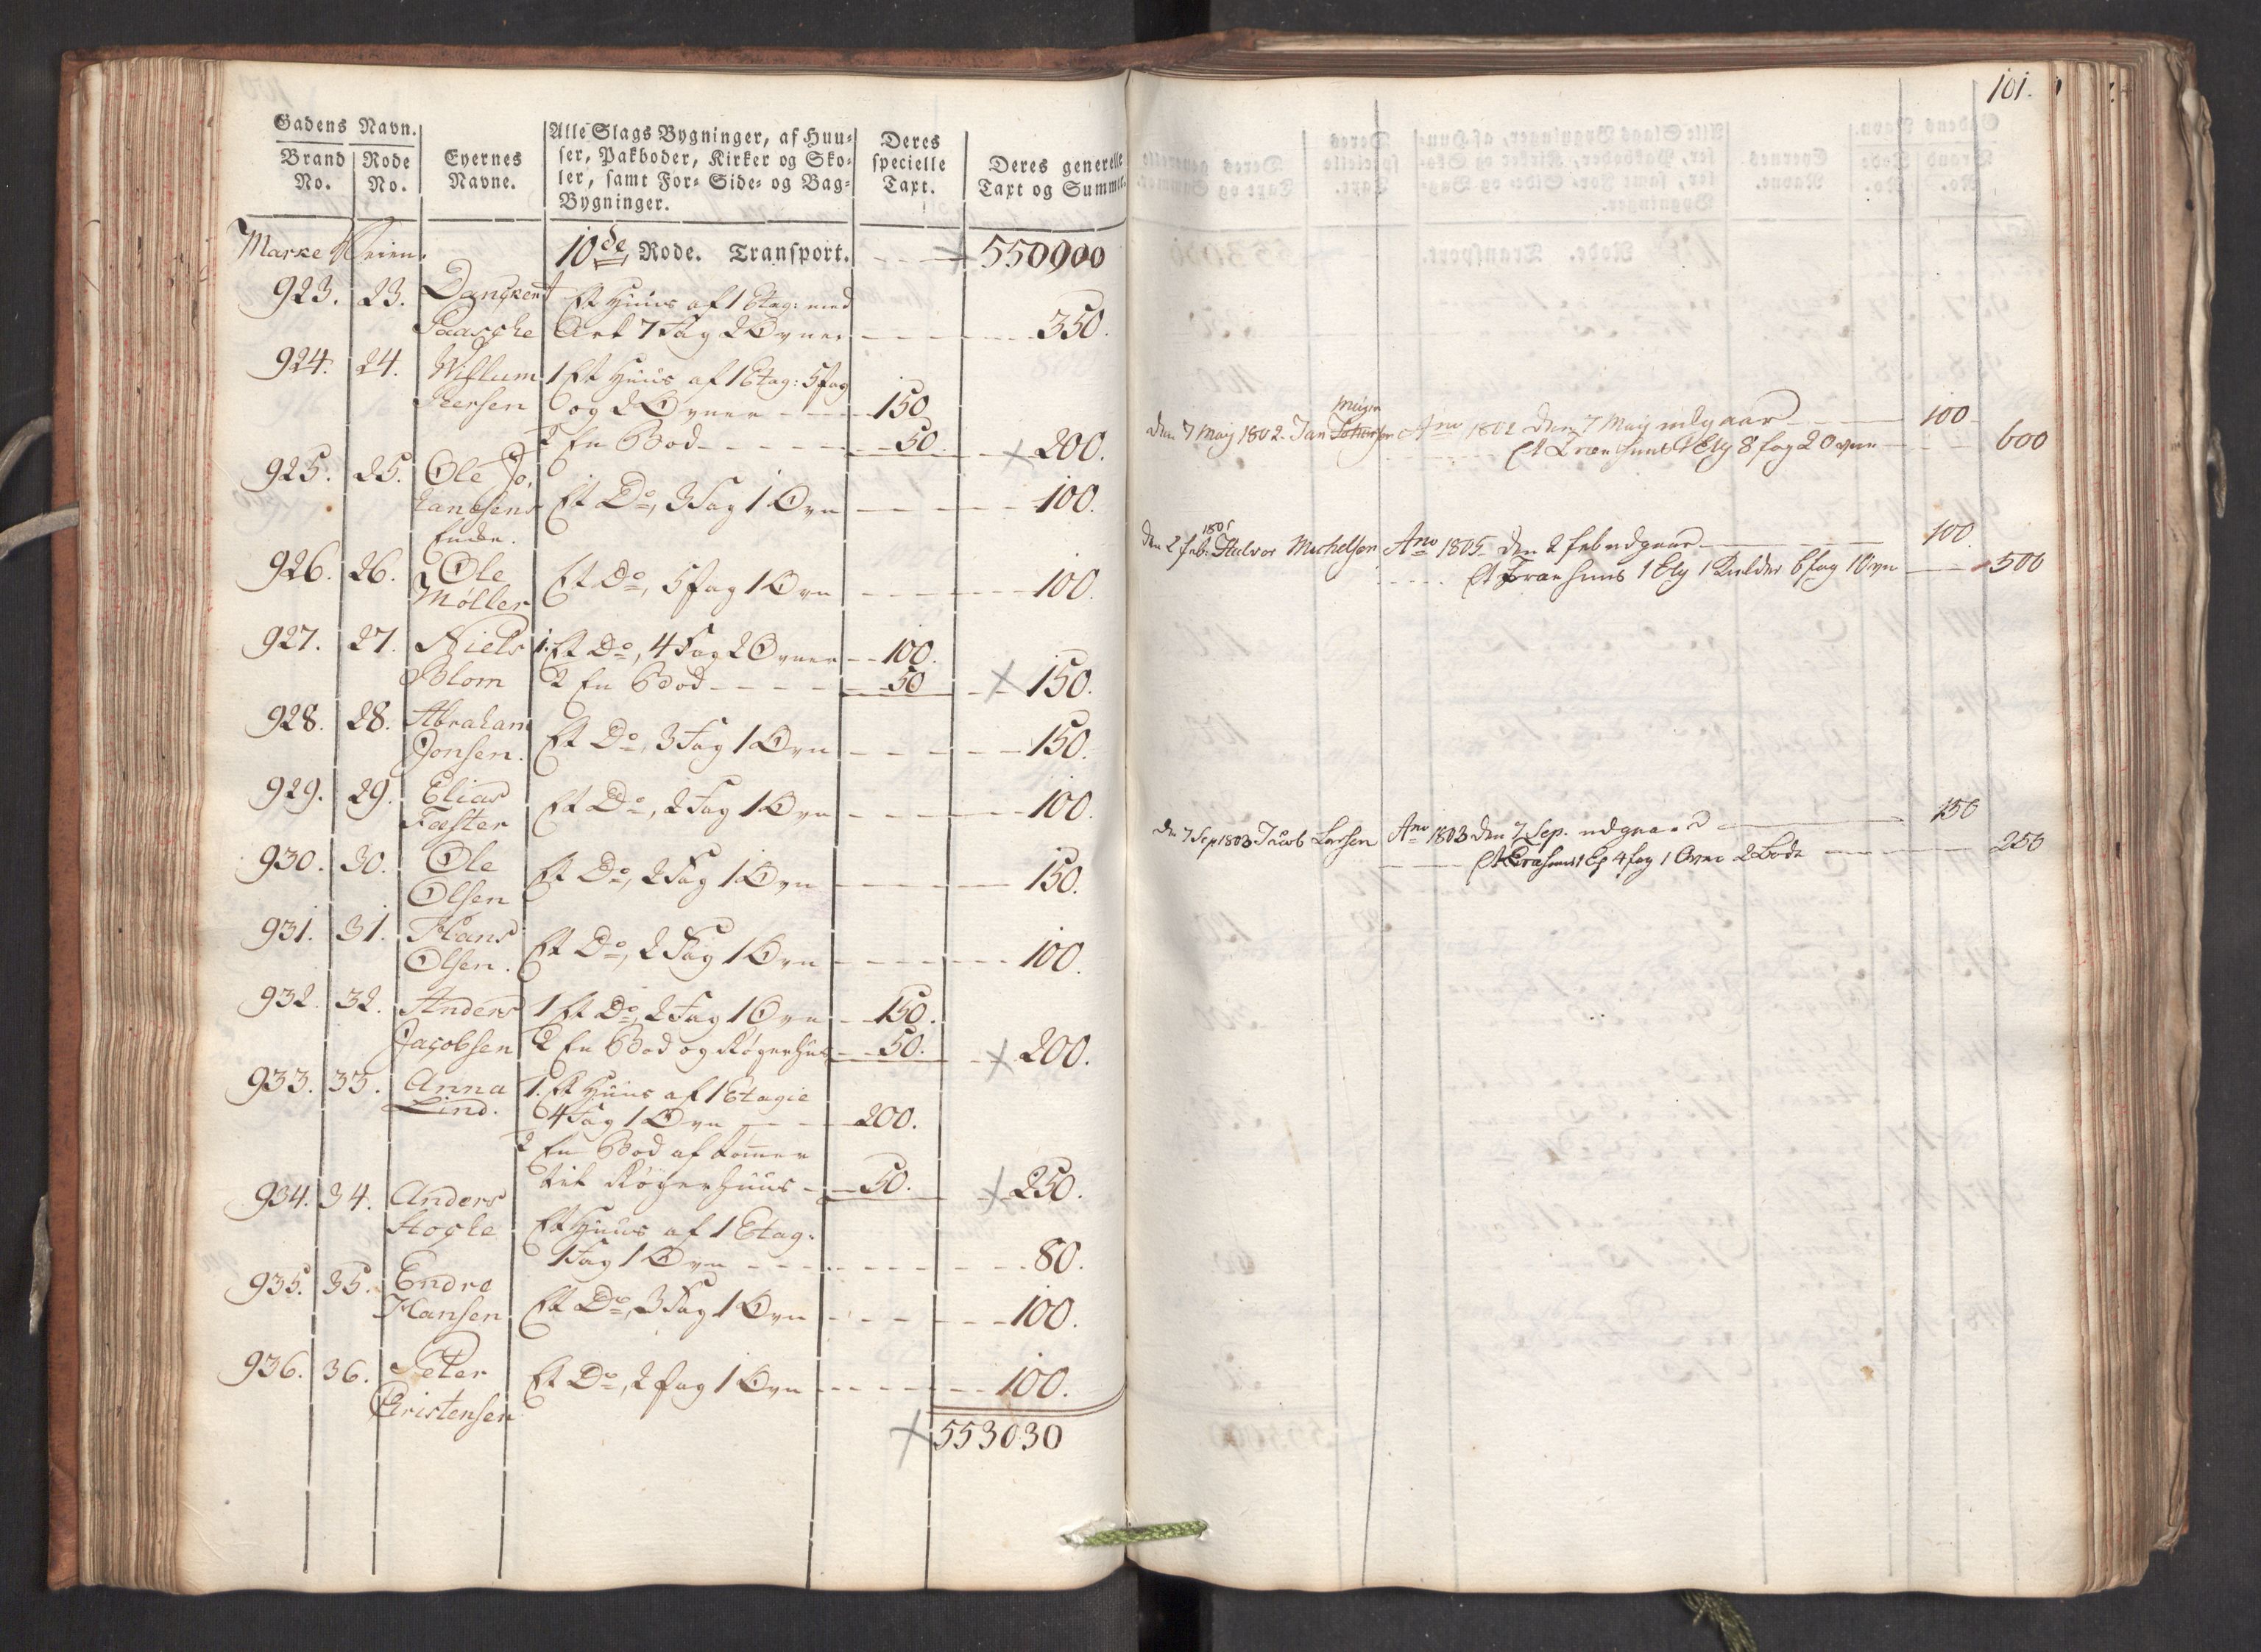 Gadens Navn.
Brand No. Rode No. Eyernes Navne. Alle Slags Bygninger, af Huu-
ser, Pakboder, Kirker og Sko-
ler, samt For- Side- og Bag-
Bygninger. Deres specielle Taxt. Deres generelle Taxt og Summer.
Marke Veien. 10de Rode. Transport. 550900
923. 23. Danckert Et Huus af 1 Etag: med
Paasche Ark 7 Fag 2 Ovner 350.
924. 24. Willum 1 Et Huus af 1 Etag: 5 fag
Peersen og 2 Ovner 150
2 En Bod 50. 200.
925. 25. Ole Jo,
hansens Et Do, 3 Fag 1 Ovn 100.
Enke.
926. 26. Ole Et Do, 5 fag 1 Ovn 100.
Møller
927. 27. Niels 1. Et Do, 4 Fag 2 Ovner 100.
Blom 2 En Bod 50 150.
928. 28. Abraham Et Do, 3 Fag 1 Ovn 150.
Jonsen.
929. 29. Elias Et Do, 2 Fag 1 Ovn 100.
Fæster
930. 30. Ole Et Do, 2 Fag 1 Ovn 150.
Olsen
931. 31. Hans Et Do, 2 Fag 1 Ovn 100.
Olsen.
932. 32. Anders 1 Et Do, 2 Fag 1 Ovn 150.
Jacobsen 2 En Bod og Røgerhuus 50. 200.
933. 33. Anna 1. Et Huus af 1 Etagie
Lind. 4 Fag 1 Ovn 200.
2 En Bod af Tømer
til Røgerhuus 50. 250.
934. 34. Anders
Et Huus af 1 Etag:
1 Fag 1 Ovn 80.
935. 35. Endre
Hansen Et Do, 3 Fag 1 Ovn 100.
936. 36. Peter Et Do, 2 fag 1 Ovn 100.
Cristensen
553030
101.
Meyer
den 7 May 1802. Jan Ano 1802 den 7 May udgaar 100
Et Træe Huus 1 Etg 8 fag 2 Ovne 600
1805
den 2 feb: Halvor Michelsen Ano 1805 den 2 feb udgaar 100.
Et Træe Huus 1 Etg 1 Kielder 6 fag 1 Ovn 500
den 7 Sep 1803 Jacob Larsen Ano 1803 den 7 Sep. udgaar 150
Et Træhuus 1 Eg 4 fag 1 Ovne 2 Bode 250